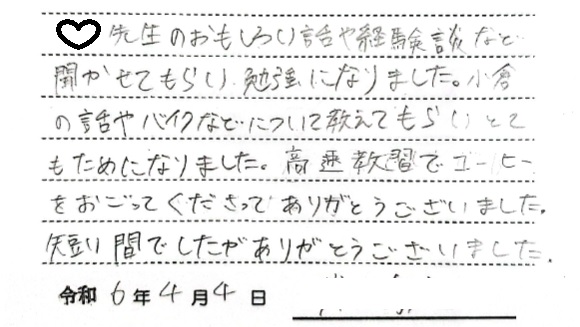 ♡先生のおもしろい話や経験談など
聞かせてもらい勉強になりました。小倉
の話やバイクなどについて教えてもらいとて
もためになりました。高速教習でコーヒー
をおごってくださってありがとうございました。
短い間でしたがありがとうございました。
令和 6年4月4日